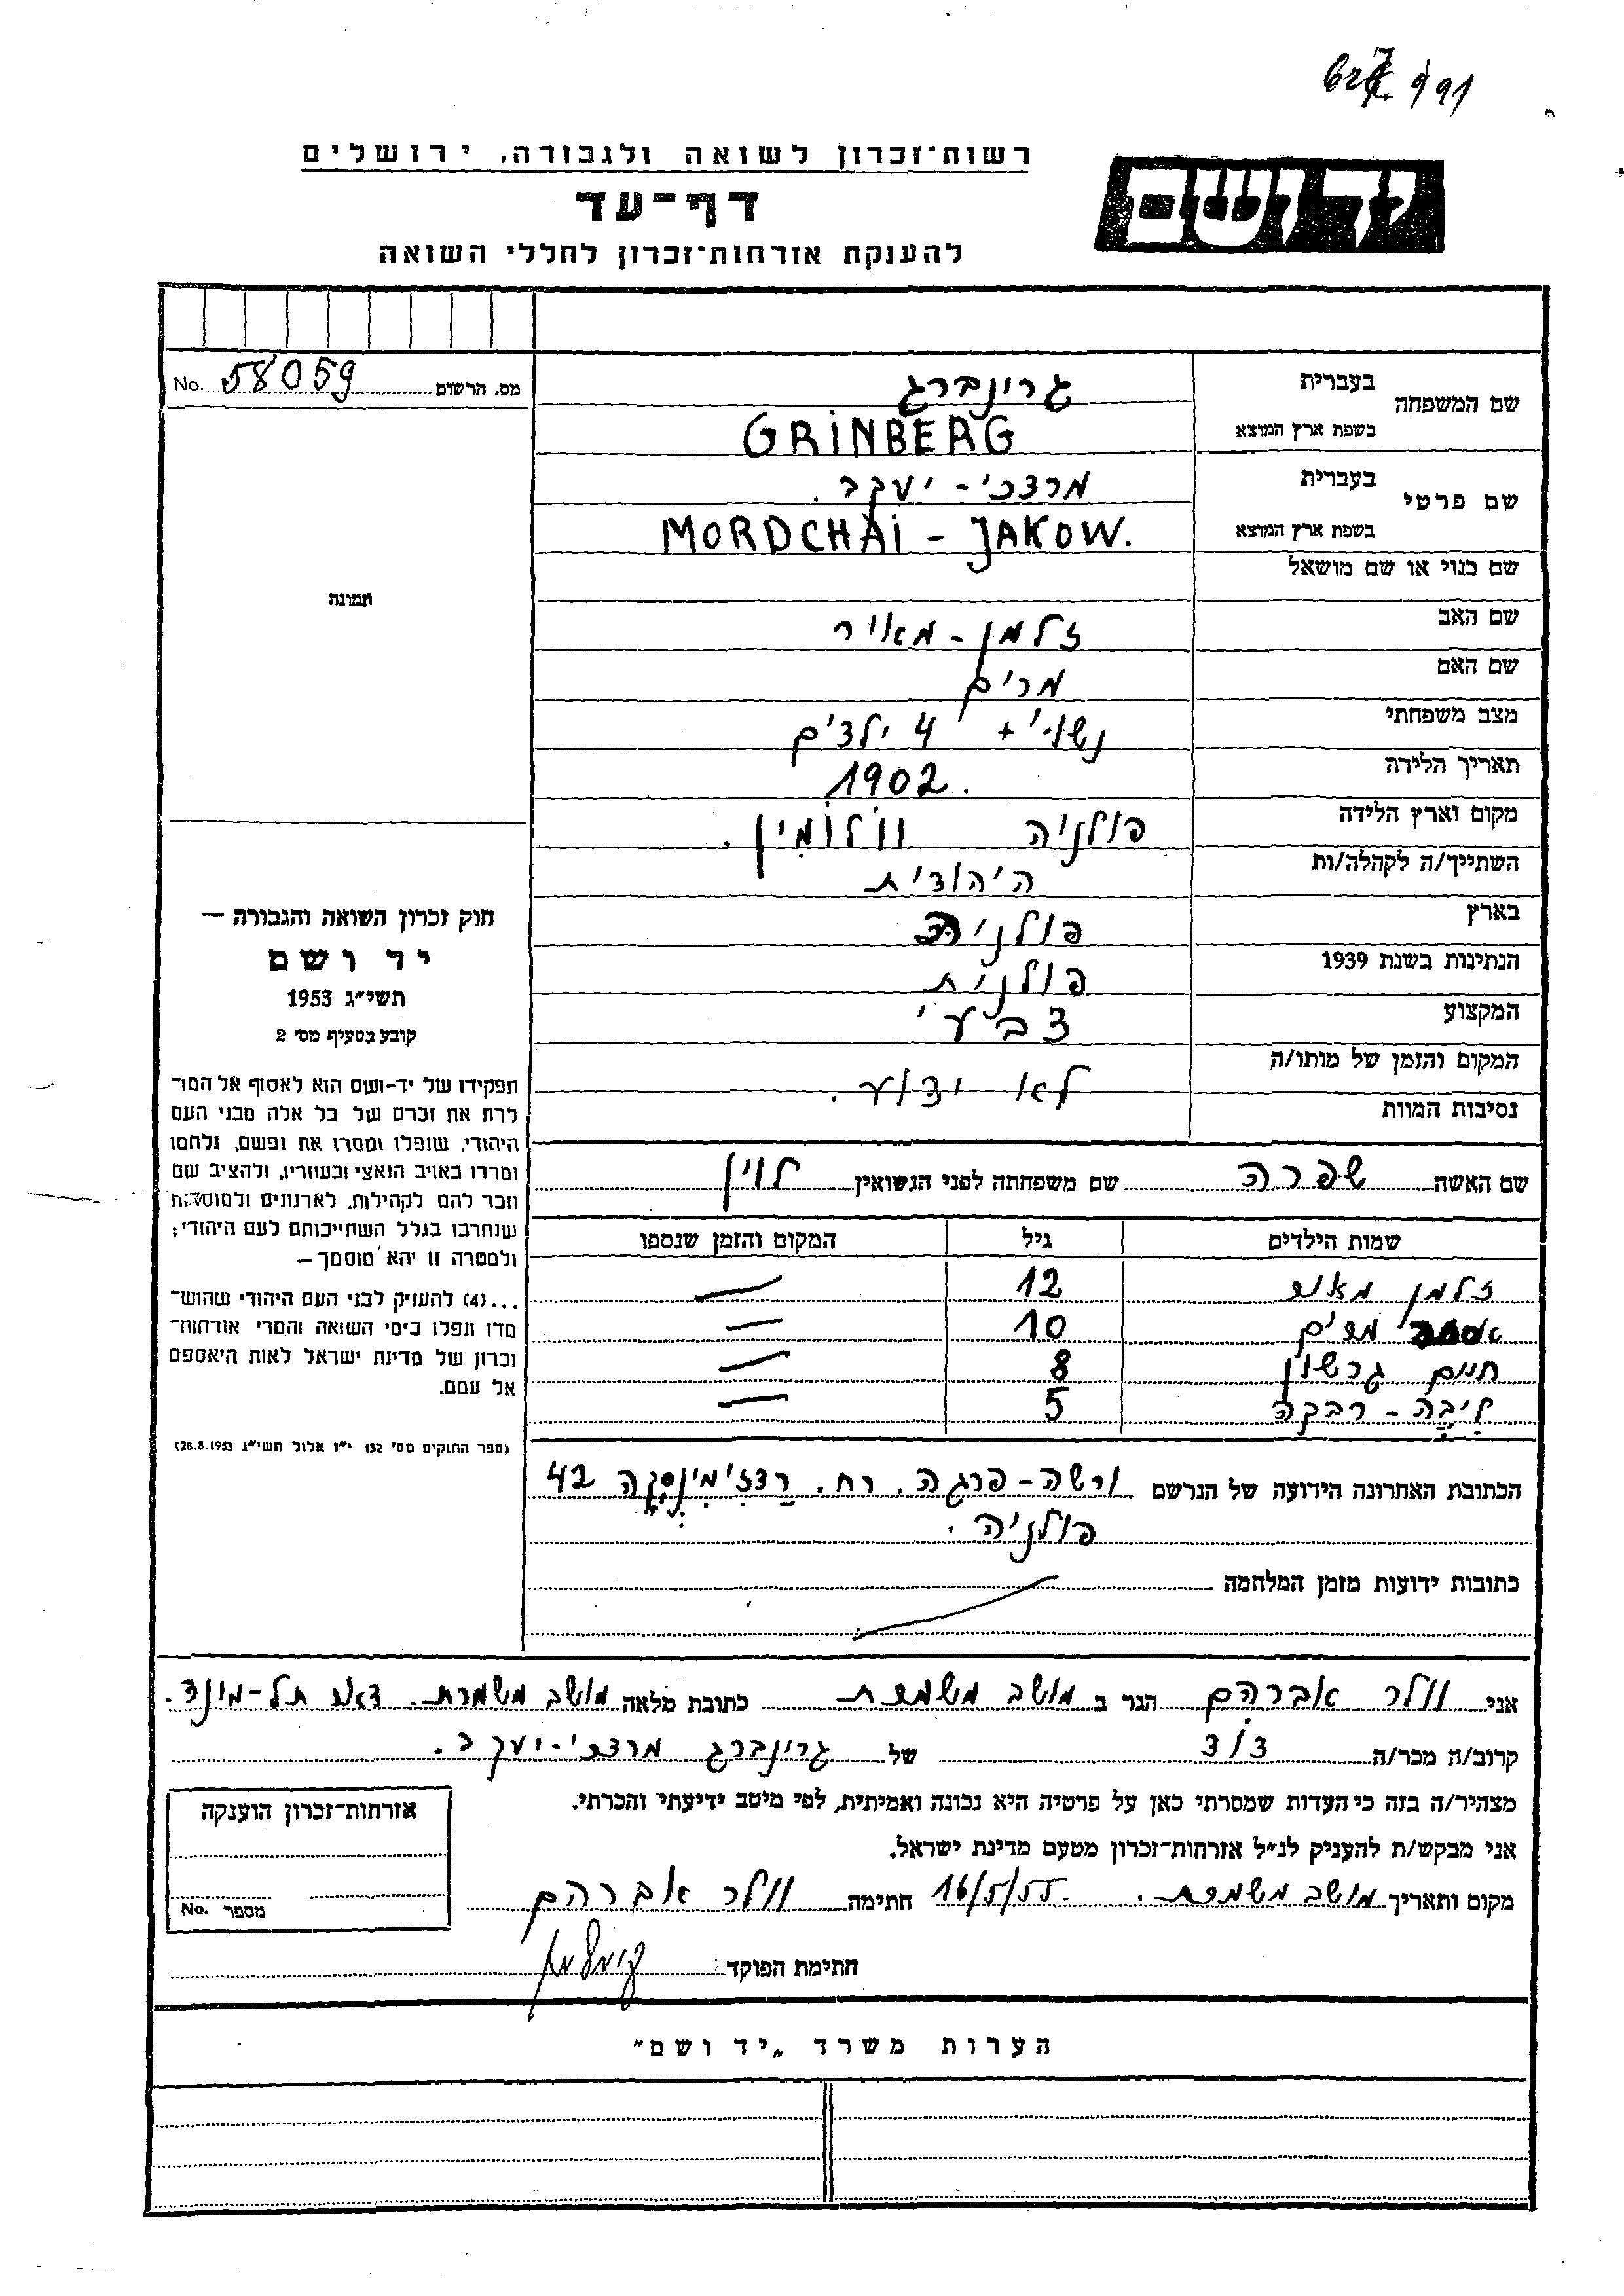 991
רשות־זכרון לשואה ולגבורה, ירושלים
יד ושם
דף־עד
להענקת אזרחות־זכרון לחללי השואה
מס. הרשום 58059 No.
שם המשפחה
בעברית גרינברג
בשפת ארץ המוצא GRINBERG
שם פרטי
בעברית מרדכי - יעקב.
בשפת ארץ המוצא MORDCHAI - JAKOW.
שם כנוי או שם מושאל
תמונה
שם האב זלמן - מאיר
שם האם מרים
מצב משפחתי נשוי + 4 ילדים
תאריך הלידה 1902.
מקום וארץ הלידה פולניה וולומין.
השתייך/ה לקהלה/ות היהודית
בארץ פולניה
הנתינות בשנת 1939 פולנית
המקצוע צבעי
המקום והזמן של מותו/ה
נסיבות המוות לא ידוע.
חוק זכרון השואה והגבורה —
יד ושם
תשי״ג 1953
קובע בסעיף מס׳ 2
תפקידו של יד-ושם הוא לאסוף אל המו־
לדת את זכרם של כל אלה מבני העם
היהודי, שנפלו ומסרו את נפשם, נלחמו
ומרדו באויב הנאצי ובעוזריו, ולהציב שם
וזכר להם לקהילות, לארגונים ולמוסדות
שנחרבו בגלל השתייכותם לעם היהודי;
ולמטרה זו יהא מוסמך —
...(4) להעניק לבני העם היהודי שהוש־
מדו ונפלו בימי השואה והמרי אזרחות־
זכרון של מדינת ישראל לאות היאספם
אל עמם.
(ספר החוקים מס׳ 132 י״ז אלול תשי״ג 28.8.1953)
שם האשה שפרה שם משפחתה לפני הנשואין לוין
שמות הילדים גיל המקום והזמן שנספו
זלמן מאיר 12 —
מרים 10 —
חיים גרשון 8 —
ליבה - רבקה 5 —
הכתובת האחרונה הידועה של הנרשם ורשה - פרגה. רח. רדזימינסקה 42
פולניה.
כתובות ידועות מזמן המלחמה
אני וולר אברהם הגר ב מושב משמרת כתובת מלאה מושב משמרת. דאר תל-מונד.
קרוב/ה מכר/ה דוד של גרינברג מרדכי-יעקב.
מצהיר/ה בזה כי העדות שמסרתי כאן על פרטיה היא נכונה ואמיתית, לפי מיטב ידיעתי והכרתי.
אני מבקש/ת להעניק לנ״ל אזרחות־זכרון מטעם מדינת ישראל.
מקום ותאריך מושב משמרת. 16/5/55 חתימה וולר אברהם
חתימת הפוקד
אזרחות־זכרון הוענקה
מספר No.
הערות משרד „יד ושם״